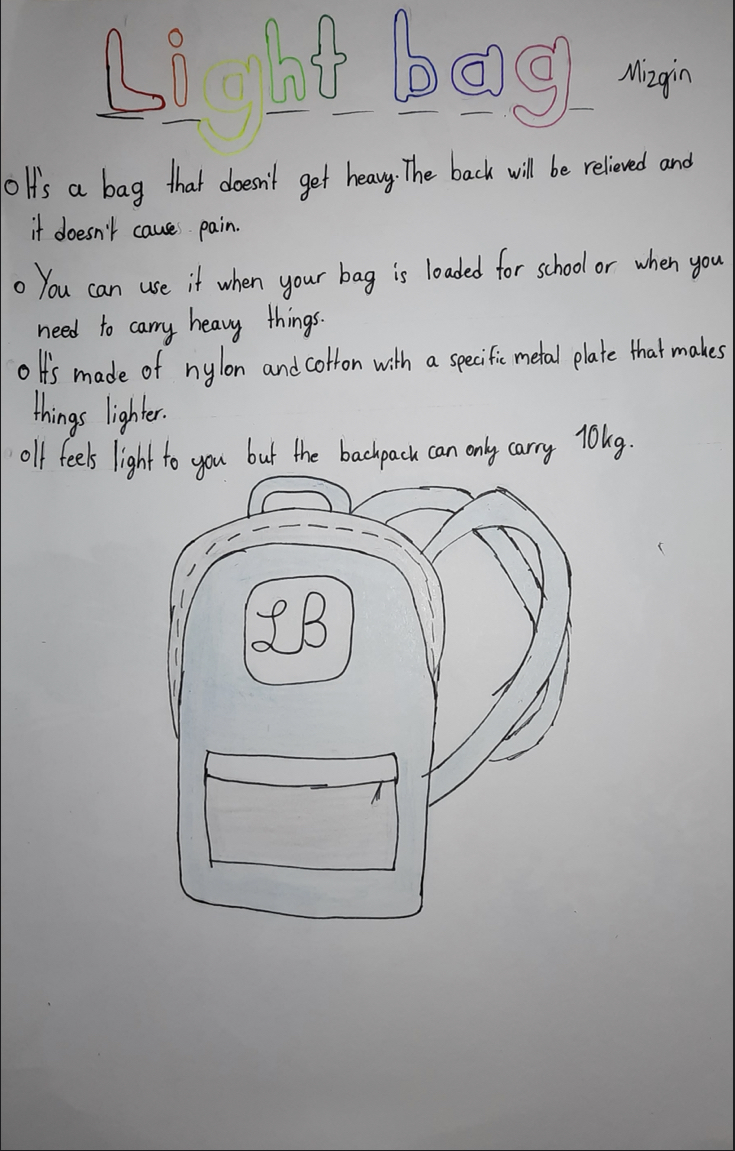 Light bag
Mizgin
It's a bag that doesn't get heavy. The back will be relieved and
it doesn't cause pain.
You can use it when your bag is loaded for school or when you
need to carry heavy things.
It's made of nylon and cotton with a specific metal plate that makes
things lighter.
It feels light to you but the backpack can only carry 10kg.
LB